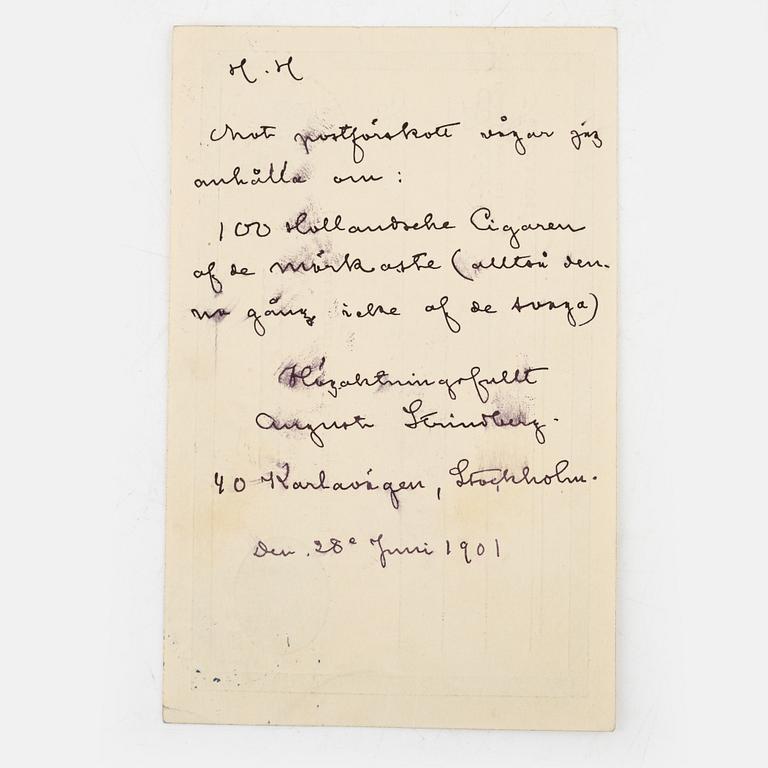 H. H
Mot postförskott vågar jag
anhålla om:
100 Hollandsche Cigaren
af de mörkaste (alltså den-
na gång icke af de svaga)
Högaktningsfullt
August Strindberg.
40 Karlavägen, Stockholm.
Den 28e Juni 1901